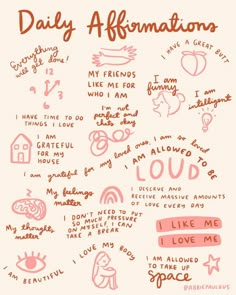 Daily Affirmations
Everything
will get done!
MY FRIENDS
LIKE ME FOR
WHO I AM
I HAVE A GREAT BUTT
I am
funny
I am
intelligent
I HAVE TIME TO DO
THINGS I LOVE
I'm not
perfect and
that's okay
I AM
GRATEFUL
FOR MY
HOUSE
I am grateful for my loved ones, I am so loved
I AM ALLOWED TO BE
LOUD
My feelings
matter
I DESERVE AND
RECEIVE MASSIVE AMOUNTS
OF LOVE EVERY DAY
My thoughts
matter
I DON'T NEED TO PUT
SO MUCH PRESSURE
ON MYSELF, I CAN
TAKE A BREAK
I LIKE ME
I LOVE ME
I AM BEAUTIFUL
I LOVE MY BODY
I AM ALLOWED
TO TAKE UP
Space